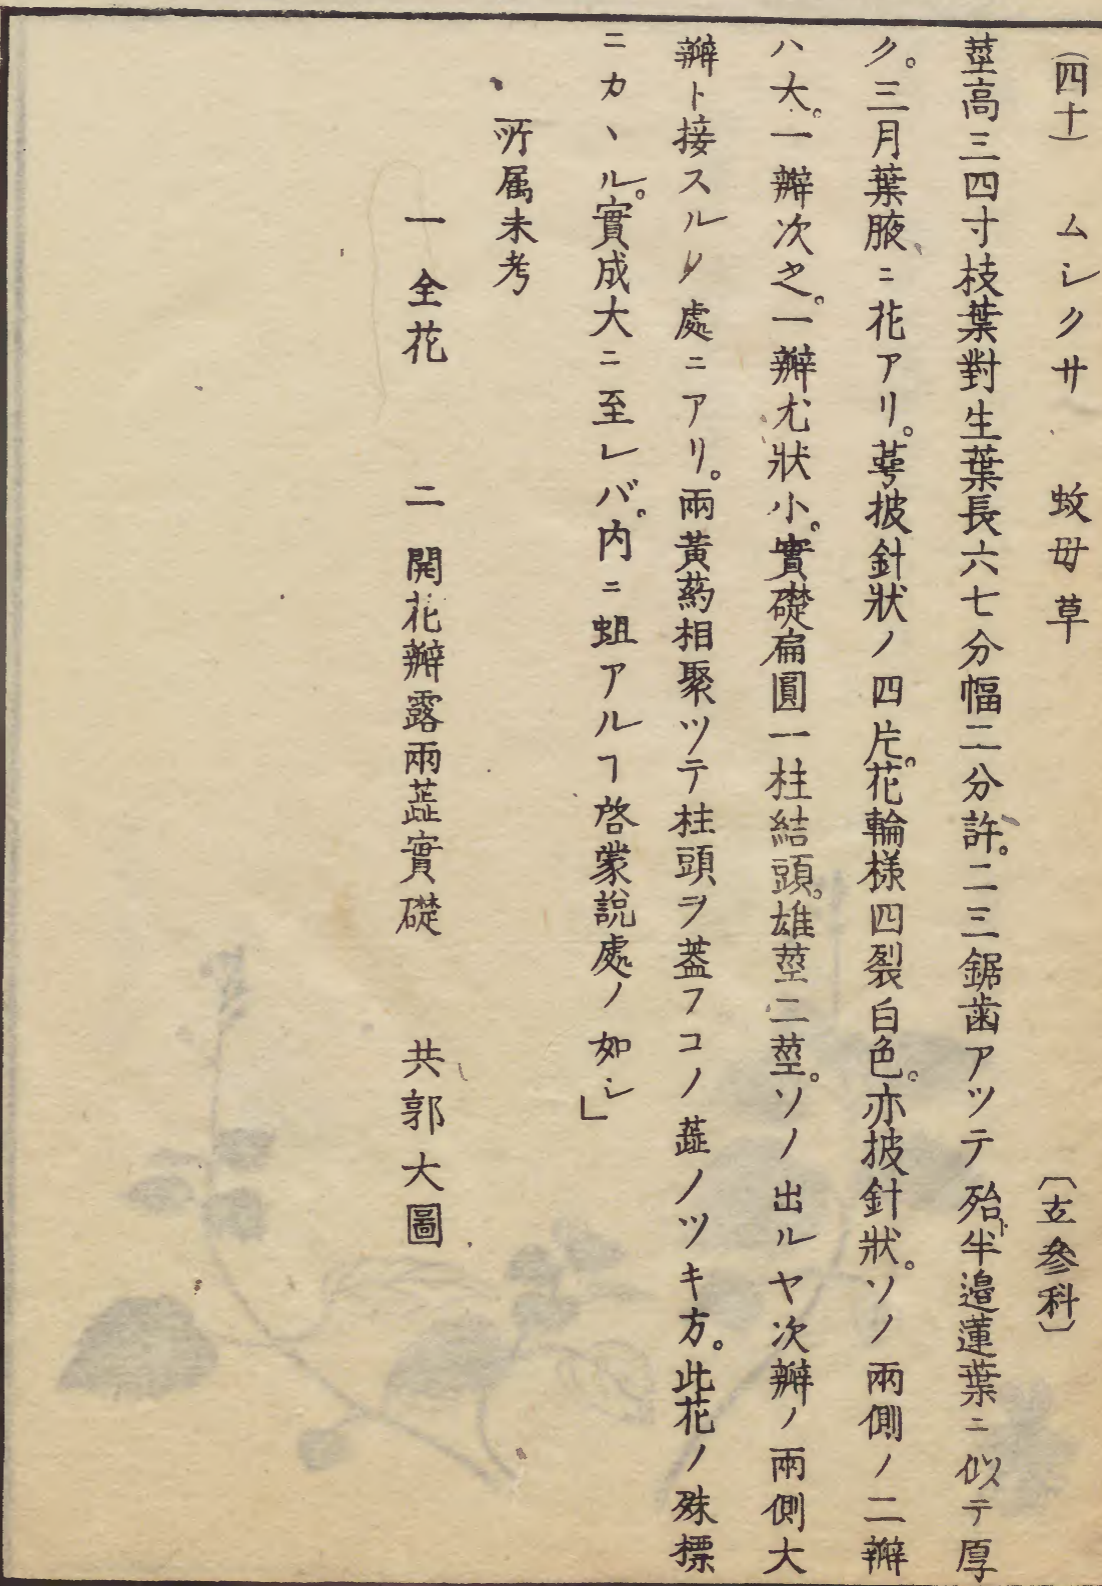 (四十) ムシクサ 蚊母草 〔玄參科〕
莖高三四寸枝葉對生葉長六七分幅二分許。二三鋸歯アツテ殆ト半邉蓮葉ニ似テ厚
ク。三月葉腋ニ花アリ。萼披針狀ノ四片。花輪様四裂白色。亦披針狀。ソノ兩側ノ二瓣
ハ大。一瓣次之。一瓣尤狀小。實礎扁圓一柱結頭。雄莖二莖。ソノ出ルヤ次瓣ノ兩側大
瓣ト接スル処ニアリ。兩黃葯相聚ツテ柱頭ヲ蓋フコノ蕋ノツキ方。此花ノ殊標
ニカヽル。實成大ニ至レバ。内ニ蛆アルヿ啓蒙説處ノ如シ」
所属未考
一 全花 二 開花瓣露兩蕋實礎 共郭大圖